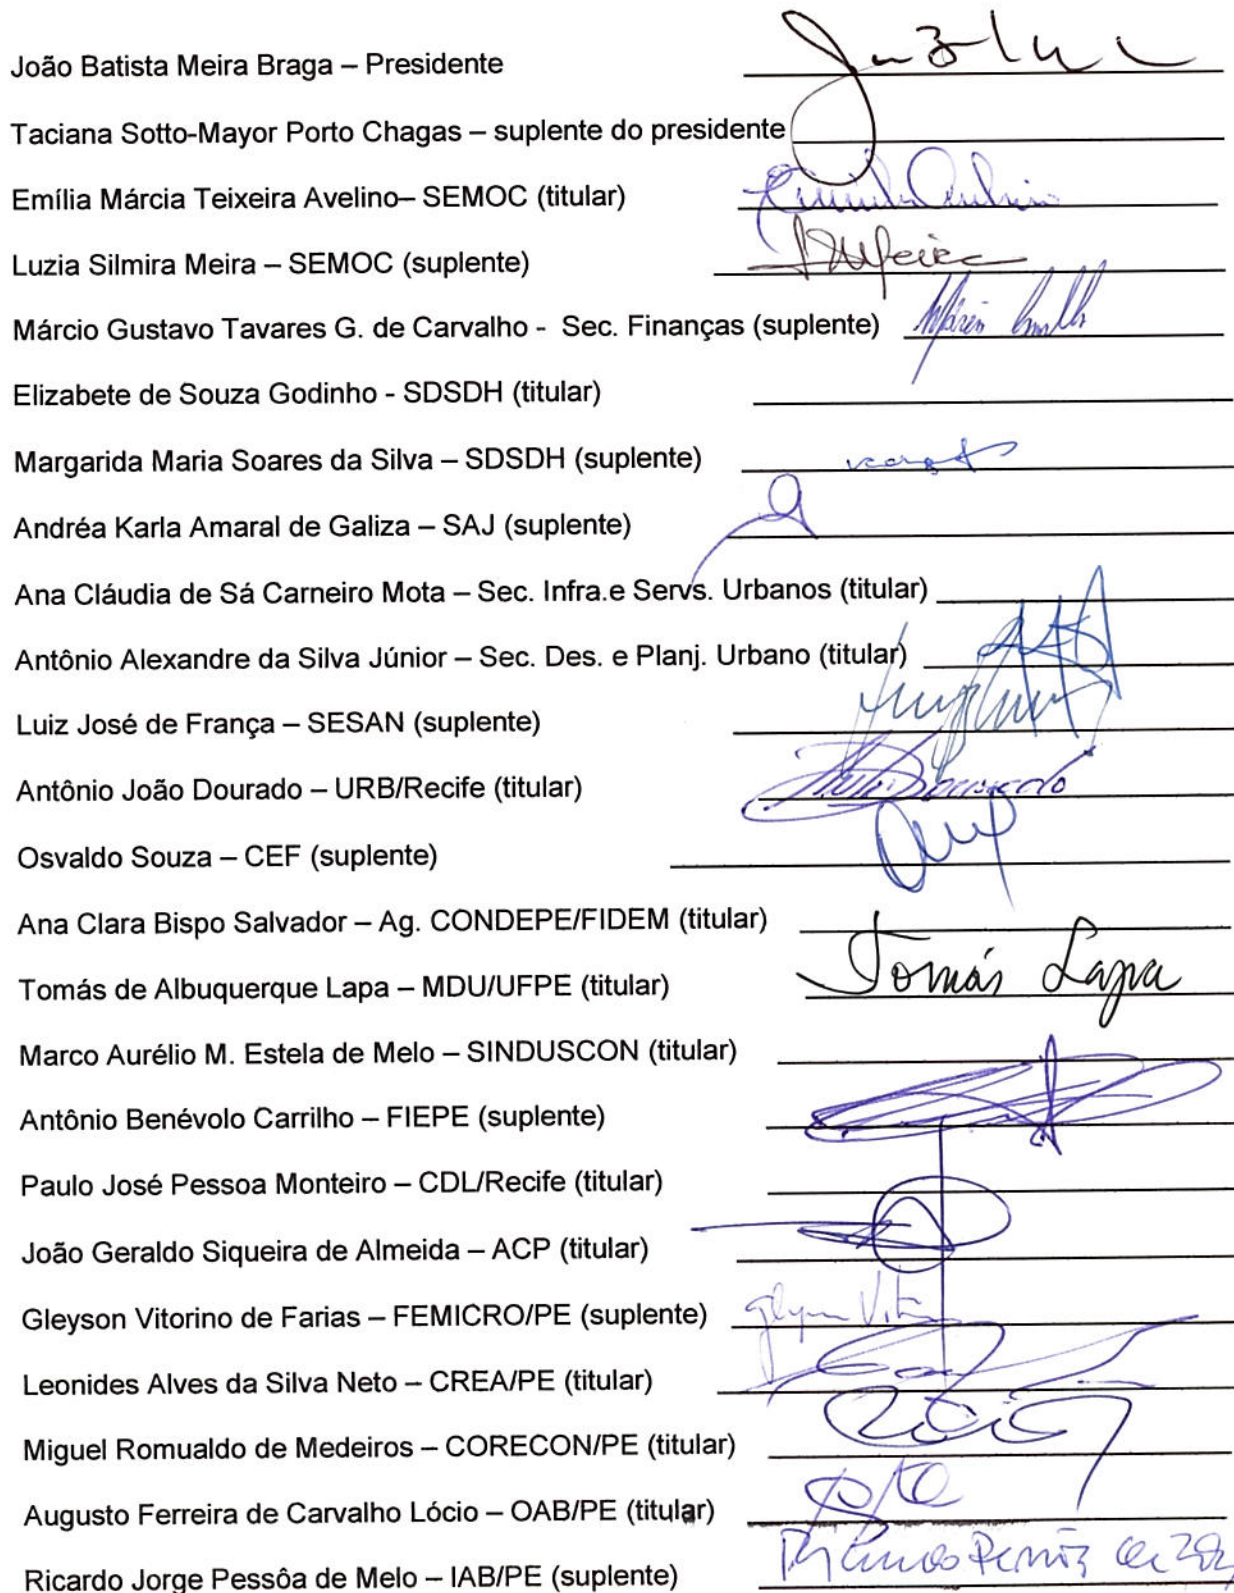 João Batista Meira Braga – Presidente
Taciana Sotto-Mayor Porto Chagas – suplente do presidente
Emília Márcia Teixeira Avelino– SEMOC (titular)
Luzia Silmira Meira – SEMOC (suplente)
Márcio Gustavo Tavares G. de Carvalho - Sec. Finanças (suplente)
Elizabete de Souza Godinho - SDSDH (titular)
Margarida Maria Soares da Silva – SDSDH (suplente)
Andréa Karla Amaral de Galiza – SAJ (suplente)
Ana Cláudia de Sá Carneiro Mota – Sec. Infra.e Servs. Urbanos (titular)
Antônio Alexandre da Silva Júnior – Sec. Des. e Planj. Urbano (titular)
Luiz José de França – SESAN (suplente)
Antônio João Dourado – URB/Recife (titular)
Osvaldo Souza – CEF (suplente)
Ana Clara Bispo Salvador – Ag. CONDEPE/FIDEM (titular)
Tomás de Albuquerque Lapa – MDU/UFPE (titular) Tomás Lapa
Marco Aurélio M. Estela de Melo – SINDUSCON (titular)
Antônio Benévolo Carrilho – FIEPE (suplente)
Paulo José Pessoa Monteiro – CDL/Recife (titular)
João Geraldo Siqueira de Almeida – ACP (titular)
Gleyson Vitorino de Farias – FEMICRO/PE (suplente)
Leonides Alves da Silva Neto – CREA/PE (titular)
Miguel Romualdo de Medeiros – CORECON/PE (titular)
Augusto Ferreira de Carvalho Lócio – OAB/PE (titular)
Ricardo Jorge Pessôa de Melo – IAB/PE (suplente)